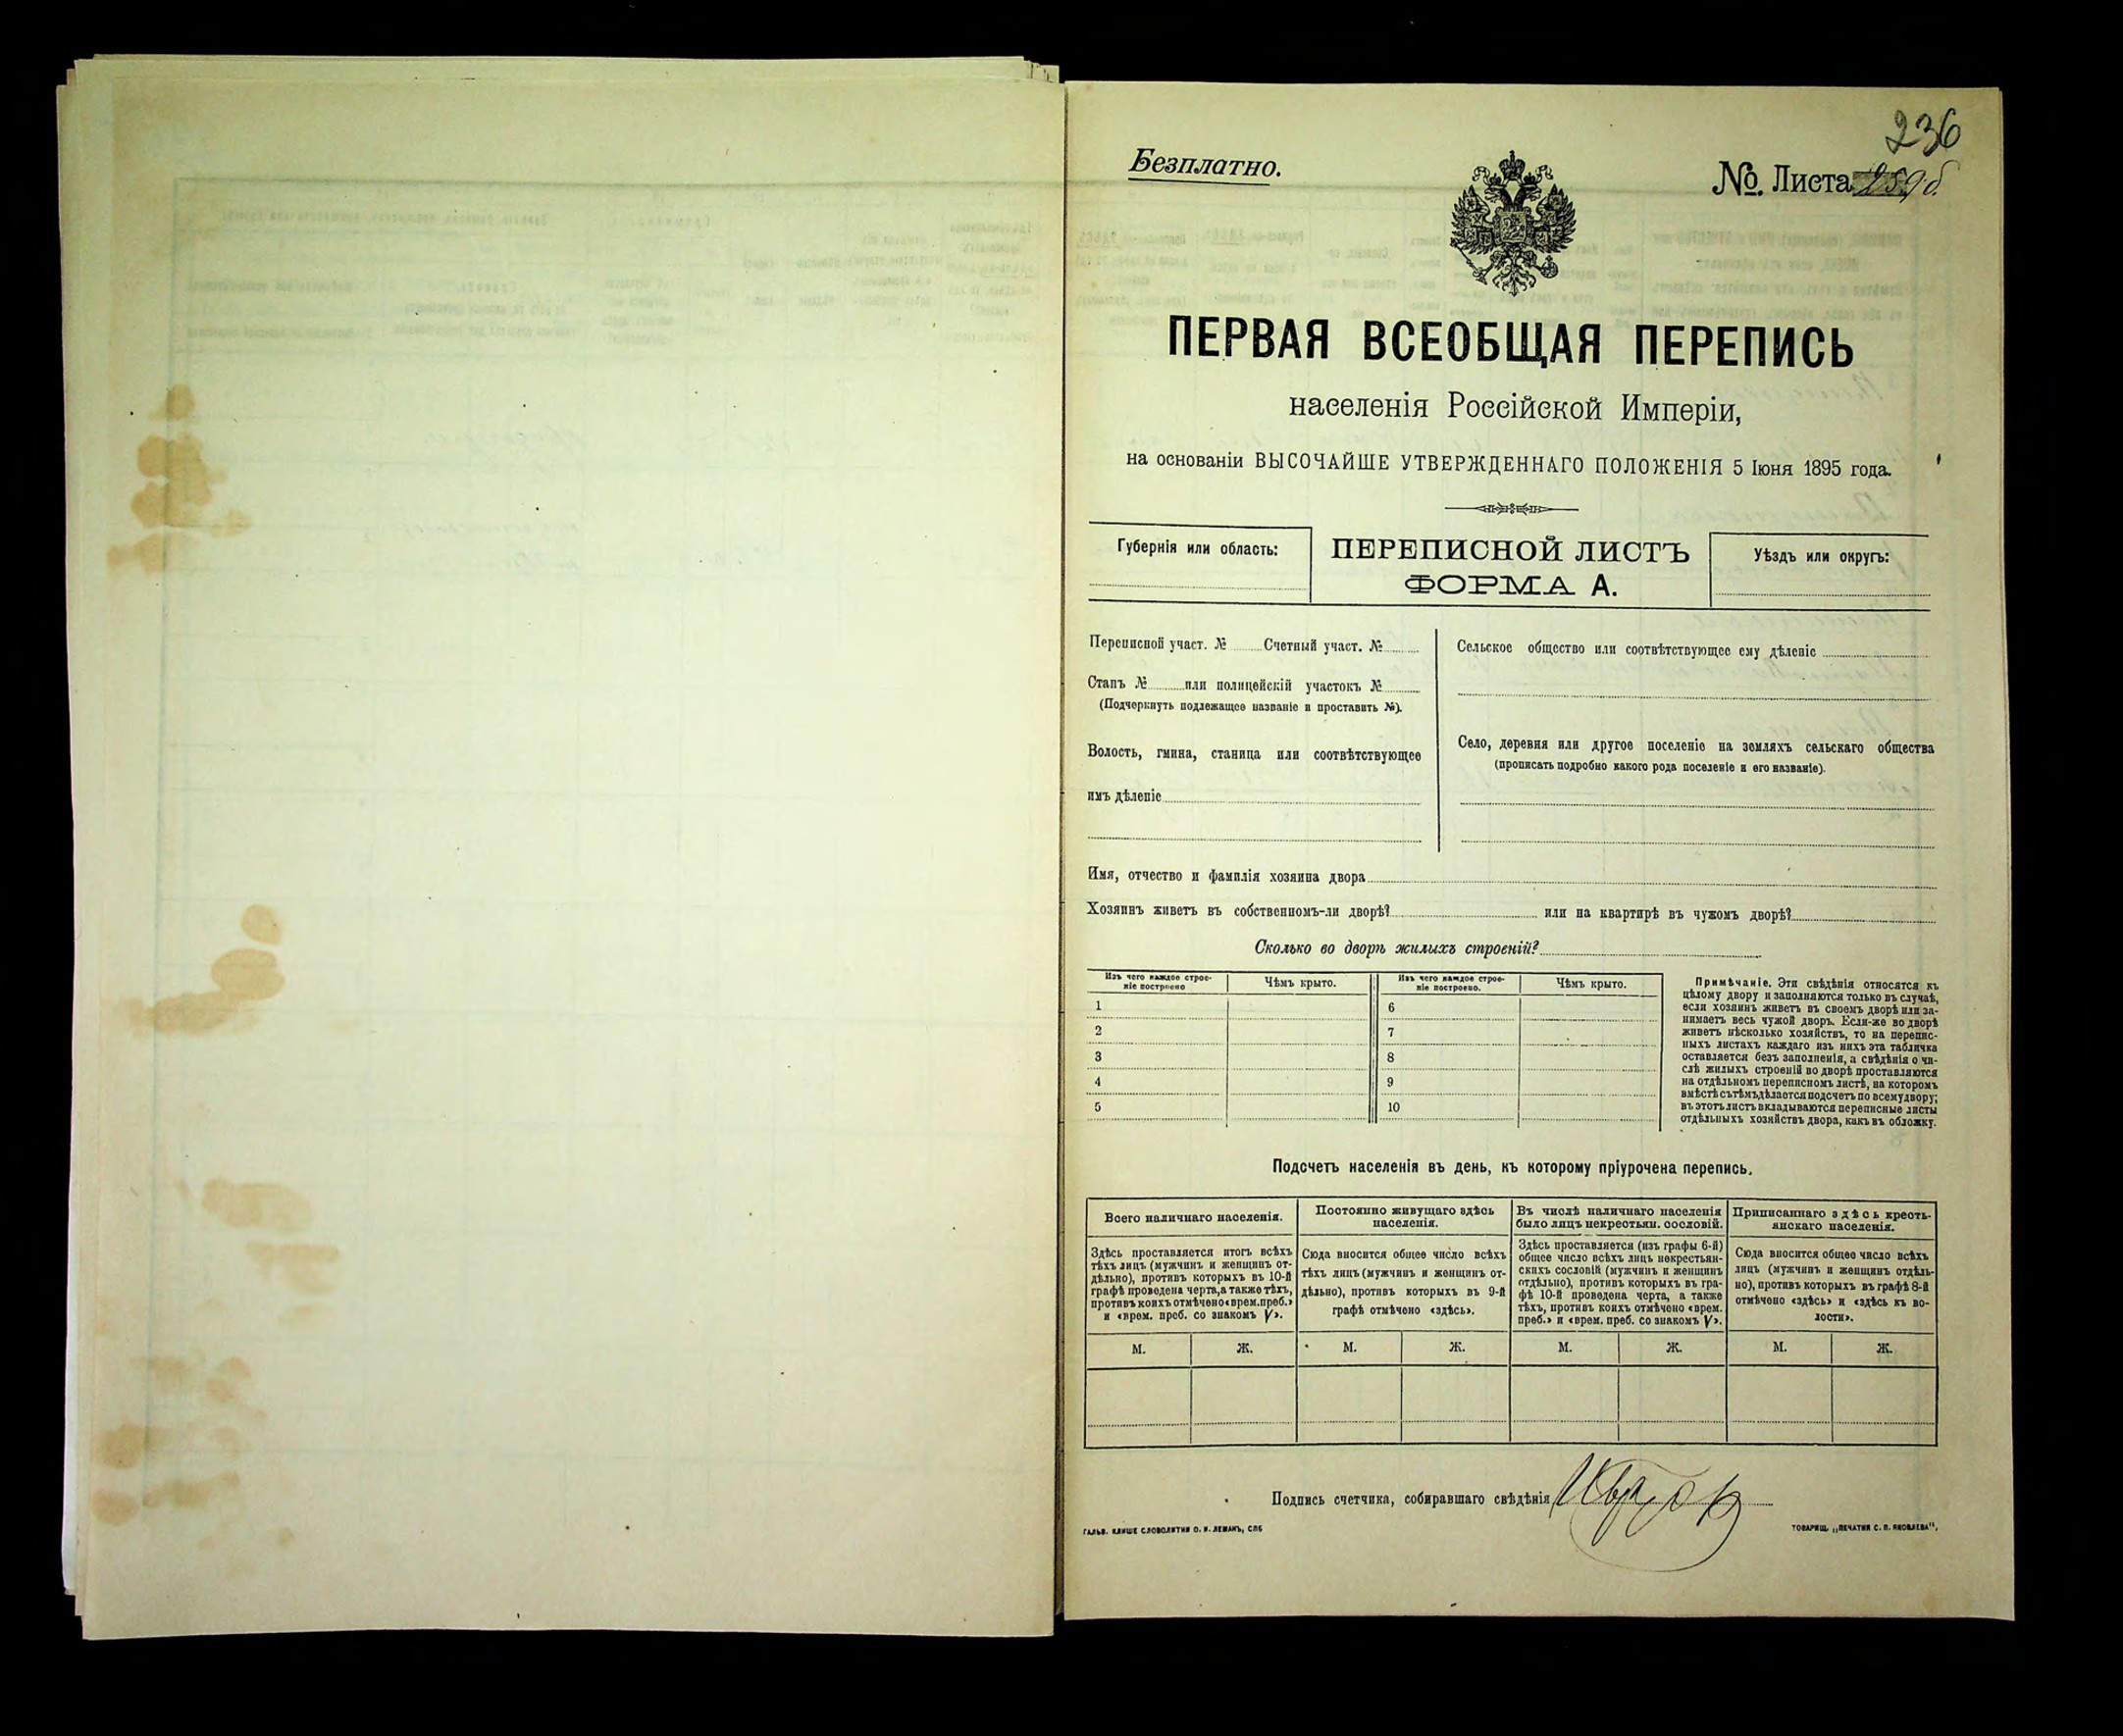 236
Безплатно.
№. Листа
ПЕРВАЯ ВСЕОБЩАЯ ПЕРЕПИСЬ
населенія Россійской Имперіи,
на основаніи ВЫСОЧАЙШЕ УТВЕРЖДЕННАГО ПОЛОЖЕНІЯ 5 Іюня 1895 года.
Губернія или область:
ПЕРЕПИСНОЙ ЛИСТЪ
ФОРМА А.
Уѣздъ или округъ:
Переписной участ. № Счетный участ. №
Станъ № или полицейскій участокъ №
(Подчеркнуть подлежащее названіе и проставить №).
Волость, гмина, станица или соотвѣтствующее
имъ дѣленіе
Сельское общество или соотвѣтствующее ему дѣленіе
Село, деревня или другое поселеніе на земляхъ сельскаго общества
(прописать подробно какого рода поселеніе и его названіе).
Имя, отчество и фамилія хозяина двора
Хозяинъ живетъ въ собственномъ-ли дворѣ? или на квартирѣ въ чужомъ дворѣ?
Сколько во дворѣ жилыхъ строеній?
Изъ чего каждое строе-
ніе построено
Чѣмъ крыто.
Изъ чего каждое строе-
ніе построено.
Чѣмъ крыто.
1 6
2 7
3 8
4 9
5 10
Примѣчаніе. Эти свѣдѣнія относятся къ
цѣлому двору и заполняются только въ случаѣ,
если хозяинъ живетъ въ своемъ дворѣ или за-
нимаетъ весь чужой дворъ. Если-же во дворѣ
живетъ нѣсколько хозяйствъ, то на перепис-
ныхъ листахъ каждаго изъ нихъ эта табличка
оставляется безъ заполненія, а свѣдѣнія о чи-
слѣ жилыхъ строеній во дворѣ проставляются
на отдѣльномъ переписномъ листѣ, на которомъ
вмѣстѣ съ тѣмъ дѣлается подсчетъ по всему двору;
въ этотъ листъ вкладываются переписные листы
отдѣльныхъ хозяйствъ двора, какъ въ обложку.
Подсчетъ населенія въ день, къ которому пріурочена перепись.
Всего наличнаго населенія.
Постоянно живущаго здѣсь
населенія.
Въ числѣ наличнаго населенія
было лицъ некрестьян. сословій.
Приписаннаго здѣсь кресть-
янскаго населенія.
Здѣсь проставляется итогъ всѣхъ
тѣхъ лицъ (мужчинъ и женщинъ от-
дѣльно), противъ которыхъ въ 10-й
графѣ проведена черта, а также тѣхъ,
противъ коихъ отмѣчено «врем. преб.»
и «врем. преб. со знакомъ V».
Сюда вносится общее число всѣхъ
тѣхъ лицъ (мужчинъ и женщинъ от-
дѣльно), противъ которыхъ въ 9-й
графѣ отмѣчено «здѣсь».
Здѣсь проставляется (изъ графы 6-й)
общее число всѣхъ лицъ некрестьян-
скихъ сословій (мужчинъ и женщинъ
отдѣльно), противъ которыхъ въ гра-
фѣ 10-й проведена черта, а также
тѣхъ, противъ коихъ отмѣчено «врем.
преб.» и «врем. преб. со знакомъ V».
Сюда вносится общее число всѣхъ
лицъ (мужчинъ и женщинъ отдѣль-
но), противъ которыхъ въ графѣ 8-й
отмѣчено «здѣсь» и «здѣсь къ во-
лости».
М. Ж. М. Ж. М. Ж. М. Ж.
Подпись счетчика, собиравшаго свѣдѣнія
ГАЛЬВ. КЛИШЕ СЛОВОЛИТНИ О. И. ЛЕМАНЪ, СПБ
ТОВАРИЩ. „ПЕЧАТНЯ С. П. ЯКОВЛЕВА“,